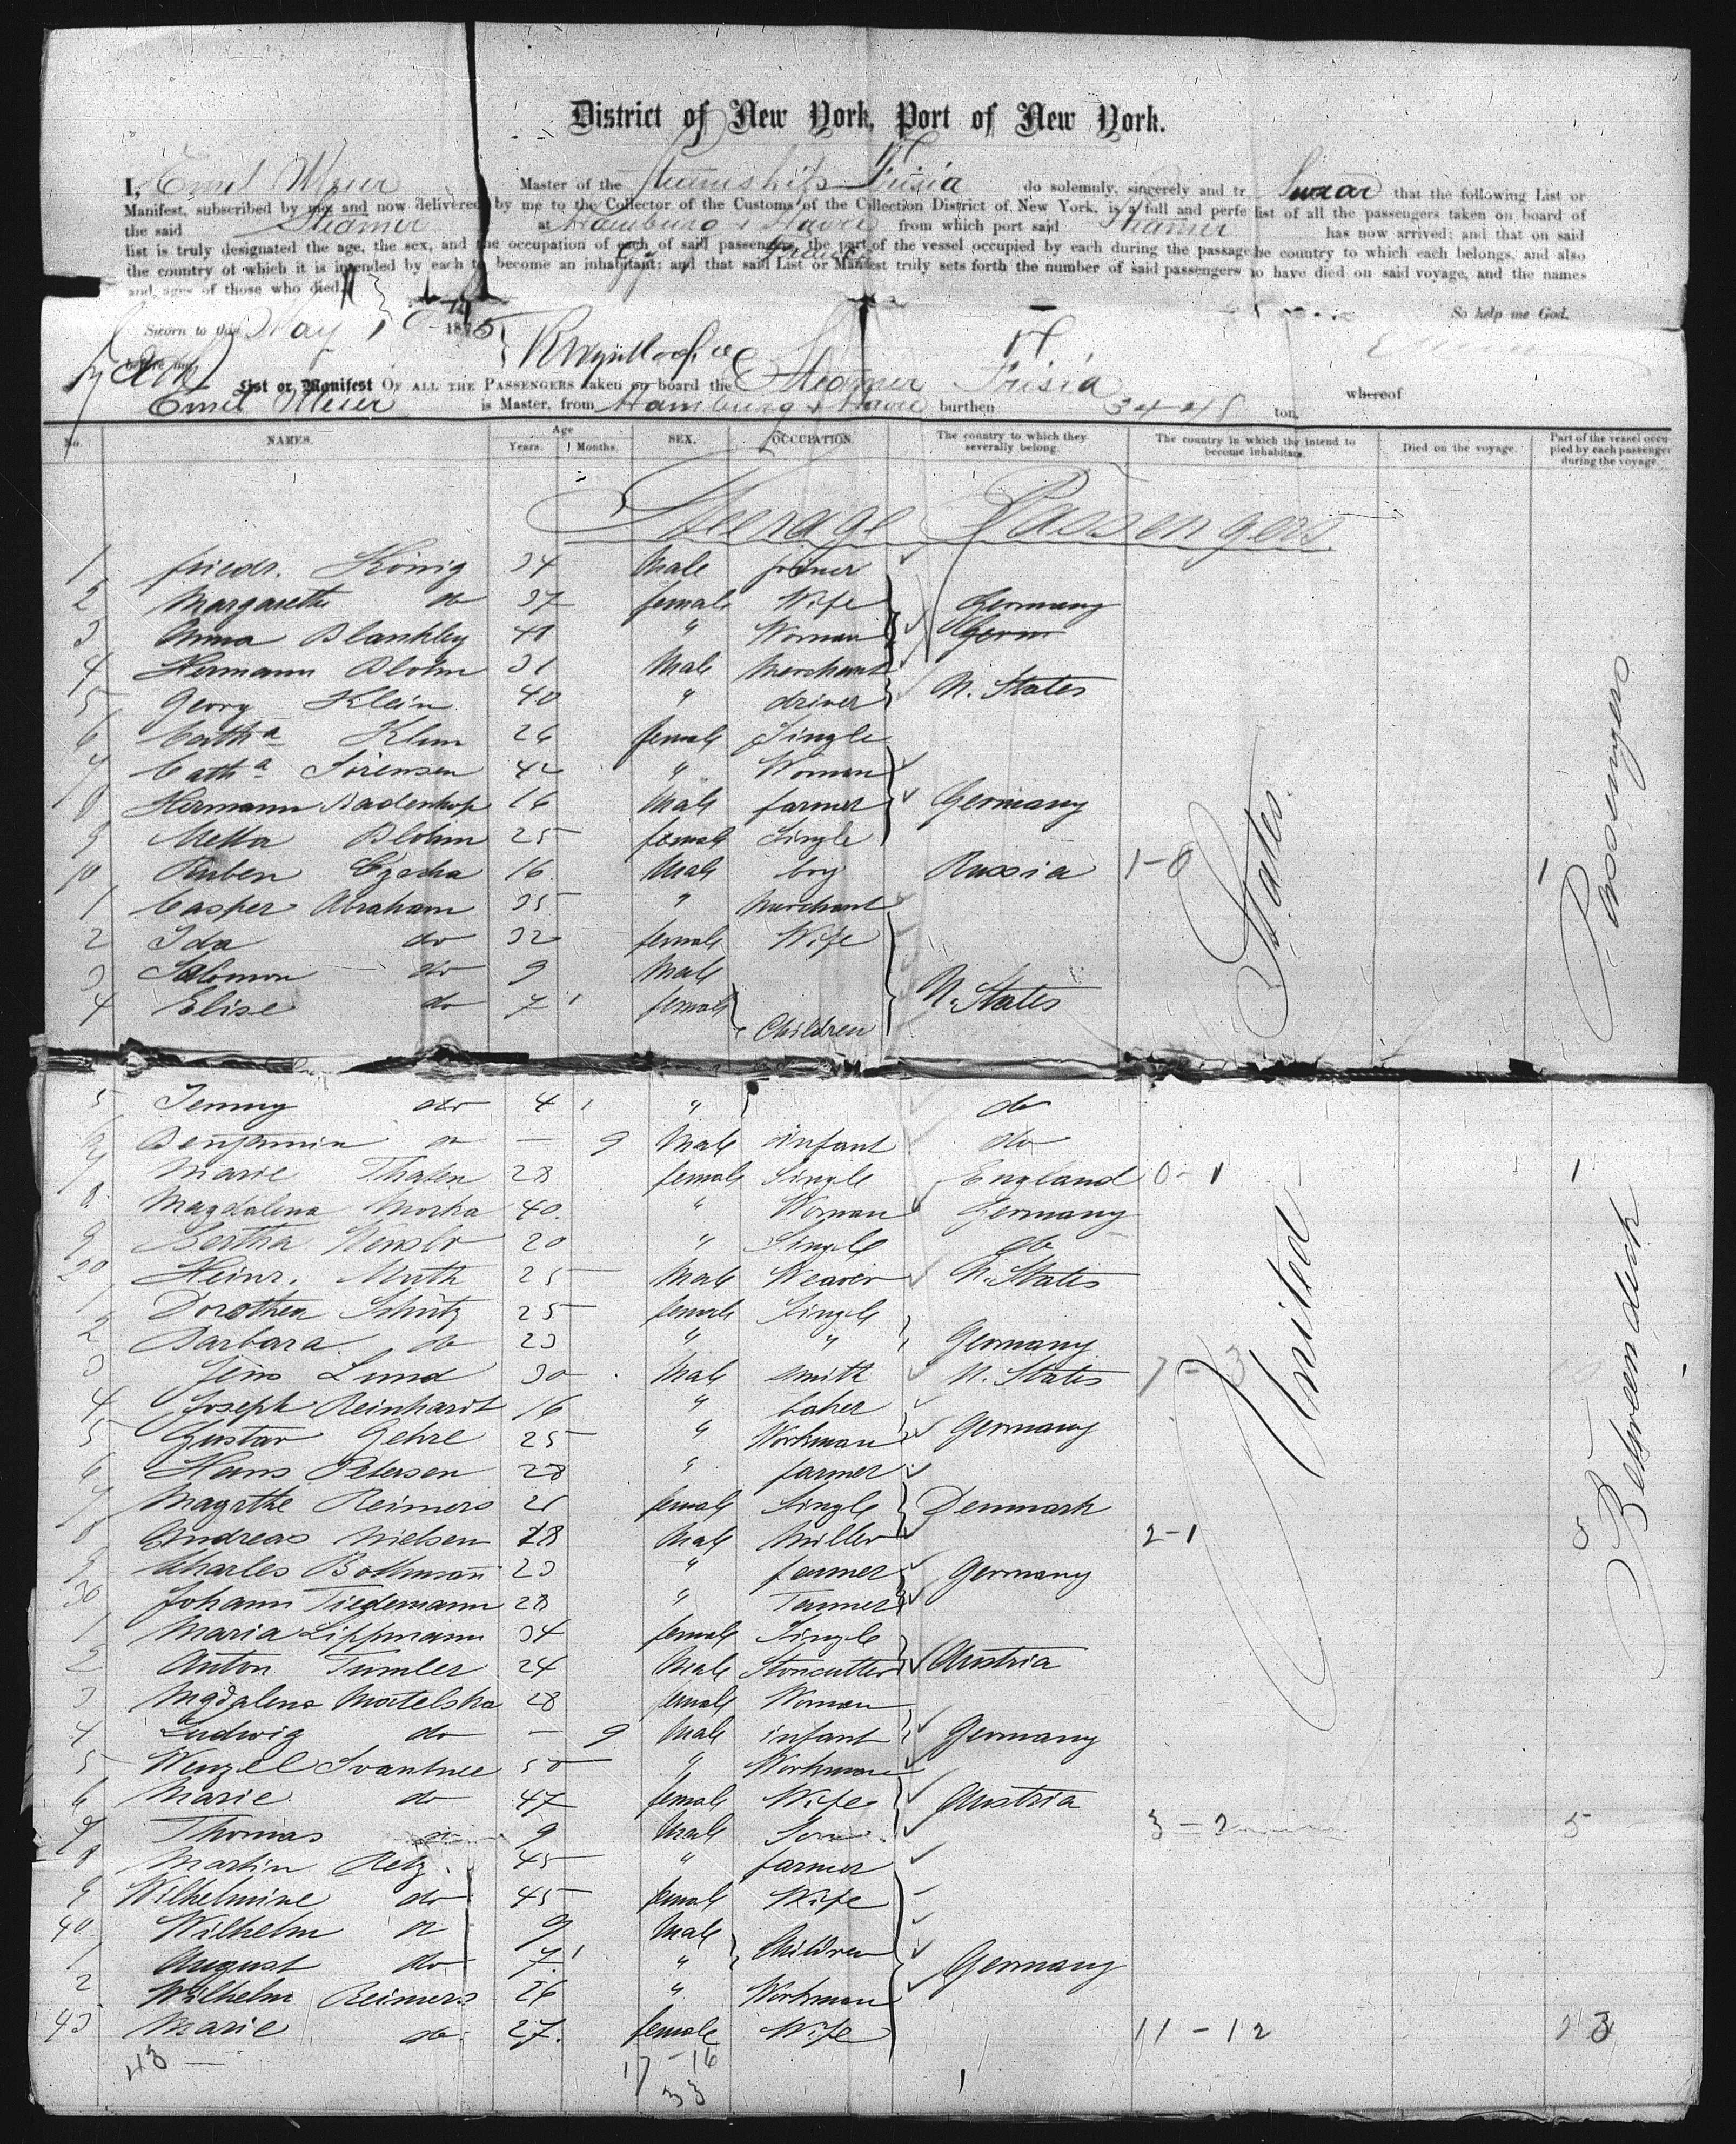 District of New York, Port of New York.
I, Emil Meier Master of the Steamship Frisia do solemnly, sincerely and tr Swear that the following List or
Manifest, subscribed by me and now delivered by me to the Collector of the Customs of the Collection District of New York, is a full and perfe list of all the passengers taken on board of
the said Steamer at Hamburg & Havre from which port said Steamer has now arrived; and that on said
list is truly designated the age, the sex, and the occupation of each of said passengers, the part of the vessel occupied by each during the passage he country to which each belongs, and also
the country of which it is intended by each to become an inhabitant; and that said List or Manifest truly sets forth the number of said passengers ho have died on said voyage, and the names
and ages of those who died.
So help me God.
Sworn to this May 1875
before me
List or Manifest OF ALL THE PASSENGERS taken on board the Steamer Frisia whereof
Emil Meier is Master, from Hamburg & Havre burthen ton.
No. NAMES. Age Years. Months. SEX. OCCUPATION. The country to which they severally belong. The country in which the intend to become inhabitats. Died on the voyage. Part of the vessel occupied by each passenger during the voyage.
Steerage Passengers
1 Friedr. König 34 Male joiner
2 Margarethe do 37 female Wife Germany
3 Anna Blankley 41 " Woman Germ
4 Hermann Blohm 31 Male Merchant
5 Georg Klein 40 " driver U. States
6 Catha Klein 26 female Single
7 Catha Sörensen 42 " Woman
8 Hermann Badenhop 16 Male farmer Germany
9 Metta Blohm 25 female Single
10 Ruben Czaska 16 Male boy Russia 1-8
1 Casper Abraham 35 " Merchant
2 Ida do 32 female Wife
3 Salomon do 9 Male
4 Elise do 7 female Children U. States
5 Jenny do 4 " do
6 Benjamin do — 9 Male infant do
7 Marie Thaten 28 female Single England 0-1 1
8 Magdalena Morka 40 " Woman Germany
9 Bertha Wenslo 20 " Single do
20 Heinr. Muth 25 Male Weaver U. States
1 Dorothea Schütz 25 female Single
2 Barbara do 23 " " Germany
3 Jens Lund 30 Male smith U. States 7-3
4 Joseph Reinhardt 16 " baker
5 Gustav Gehre 25 " Workman Germany
6 Hans Petersen 28 " farmer
7 Magrthe Reimers 21 female Single Denmark
8 Andreas Nielsen 28 Male Miller 2-1
9 Charles Bothmann 23 " farmer Germany
30 Johann Tiedemann 28 " Tanner
1 Maria Lippmann 34 female Single
2 Anton Tumler 24 Male Stonecutter Austria
3 Magdalena Matelska 28 female Woman
4 Ludwig do — 9 Male infant Germany
5 Wenzel Svantnee 50 " Workman
6 Marie do 47 female Wife Austria
7 Thomas do 9 Male Son 3-2 5
8 Martin Retz 45 " farmer
9 Wilhelmine do 45 female Wife
40 Wilhelm do 9 Male
1 August do 7 " Children Germany
2 Wilhelm Reimers 26 " Workman
43 Marie do 27 female Wife 11-12 23
43 17-16
33
United States
Between deck Passengers